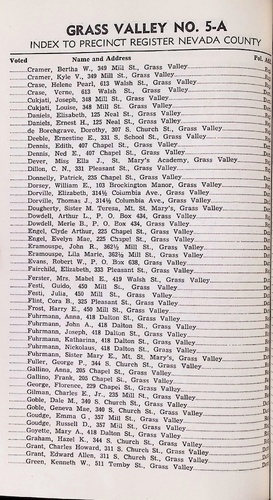 GRASS VALLEY NO. 5-A
INDEX TO PRECINCT REGISTER NEVADA COUNTY
Voted Name and Address Pol. Aff.
Cramer, Bertha W., 349 Mill St., Grass Valley
Cramer, Kyle V., 349 Mill St., Grass Valley
Crase, Helene Pearl, 613 Walsh St., Grass Valley
Crase, Verne, 613 Walsh St., Grass Valley
Cukjati, Joseph, 348 Mill St., Grass Valley
Cukjati, Louise, 348 Mill St., Grass Valley
Daniels, Elizabeth, 125 Neal St., Grass Valley
Daniels, Ernest H., 125 Neal St., Grass Valley
de Borchgrave, Dorothy, 307 S. Church St., Grass Valley
Deeble, Ernestine E., 331 S. School St., Grass Valley
Dennis, Edith, 407 Chapel St., Grass Valley
Dennis, Ned E., 407 Chapel St., Grass Valley
Dever, Miss Ella J., St. Mary's Academy, Grass Valley
Dillon, C. N., 331 Pleasant St., Grass Valley
Donnelly, Patrick, 235 Chapel St., Grass Valley
Dorsey, William E., 103 Brockington Manor, Grass Valley
Dorville, Elizabeth, 314½ Columbia Ave., Grass Valley
Dorville, Thomas J., 314½ Columbia Ave., Grass Valley
Dougherty, Sister M. Teresa, Mt. St. Mary's, Grass Valley
Dowdell, Arthur L., P. O. Box 434, Grass Valley
Dowdell, Merle B., P. O. Box 434, Grass Valley
Engel, Clyde Arthur, 225 Chapel St., Grass Valley
Engel, Evelyn Mae, 225 Chapel St., Grass Valley
Eramouspe, John R., 362½ Mill St., Grass Valley
Eramouspe, Lila Marie, 362½ Mill St., Grass Valley
Evans, Robert W., P. O. Box 638, Grass Valley
Fairchild, Elizabeth, 333 Pleasant St., Grass Valley
Ferster, Mrs. Mabel E., 419 Walsh St., Grass Valley
Festi, Guido, 450 Mill St., Grass Valley
Festi, Julia, 450 Mill St., Grass Valley
Flint, Cora B., 325 Pleasant St., Grass Valley
Frost, Harry E., 450 Mill St., Grass Valley
Fuhrmann, Anna, 418 Dalton St., Grass Valley
Fuhrmann, John A., 418 Dalton St., Grass Valley
Fuhrmann, Joseph, 418 Dalton St., Grass Valley
Fuhrmann, Katharina, 418 Dalton St., Grass Valley
Fuhrmann, Nickolaus, 418 Dalton St., Grass Valley
Fuhrmann, Sister Mary E., Mt. St. Mary's, Grass Valley
Fuller, George P., 344 S. Church St., Grass Valley
Gallino, Anna, 205 Chapel St., Grass Valley
Gallino, Frank, 205 Chapel St., Grass Valley
George, Florence, 229 Chapel St., Grass Valley
Gilman, Charles E., Jr., 235 Mill St., Grass Valley
Goble, Dale M., 340 S. Church St., Grass Valley
Goble, Geneva Mae, 340 S. Church St., Grass Valley
Goudge, Emma G., 357 Mill St., Grass Valley
Goudge, Russell D., 357 Mill St., Grass Valley
Goyette, Mary A., 418 Dalton St., Grass Valley
Graham, Hazel K., 344 S. Church St., Grass Valley
Grant, Charles Howard, 311 S. Church St., Grass Valley
Grant, Edward Allen, 311 S. Church St., Grass Valley
Green, Kenneth W., 511 Temby St., Grass Valley